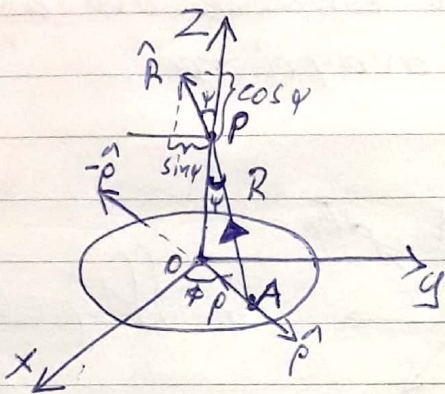 Z
R̂
ψ
cosψ
P
sinψ
-ρ̂
ψ
R
O
y
φ
ρ
A
ρ̂
X